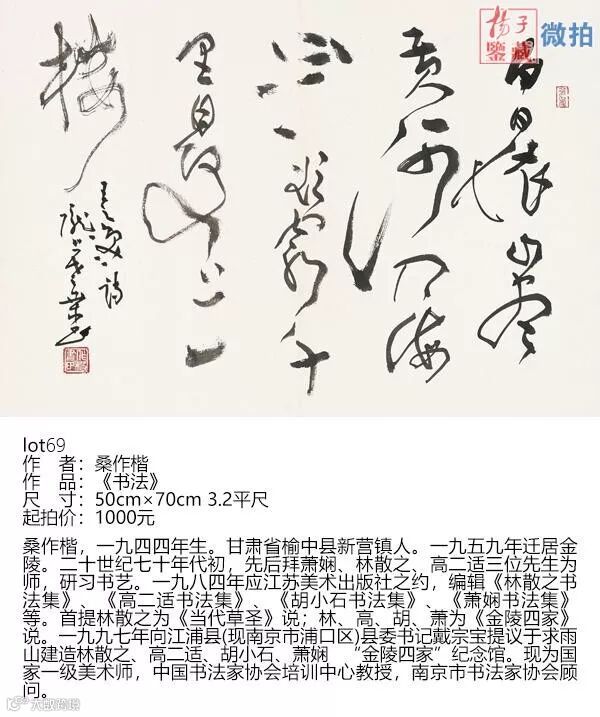 揚子
鑒藏
微拍
白日依山盡
黄河入海
流欲窮千
里目更上一
樓
lot69
作　者：桑作楷
作　品：《书法》
尺　寸：50cm×70cm 3.2平尺
起拍价：1000元
桑作楷，一九四四年生。甘肃省榆中县新营镇人。一九五九年迁居金
陵。二十世纪七十年代初，先后拜萧娴、林散之、高二适三位先生为
师，研习书艺。一九八四年应江苏美术出版社之约，编辑《林散之书
法集》、《高二适书法集》、《胡小石书法集》、《萧娴书法集》
等。首提林散之为《当代草圣》说；林、高、胡、萧为《金陵四家》
说。一九九七年向江浦县(现南京市浦口区)县委书记戴宗宝提议于求雨
山建造林散之、高二适、胡小石、萧娴 “金陵四家”纪念馆。现为国
家一级美术师，中国书法家协会培训中心教授，南京市书法家协会顾
问。
大数跨境